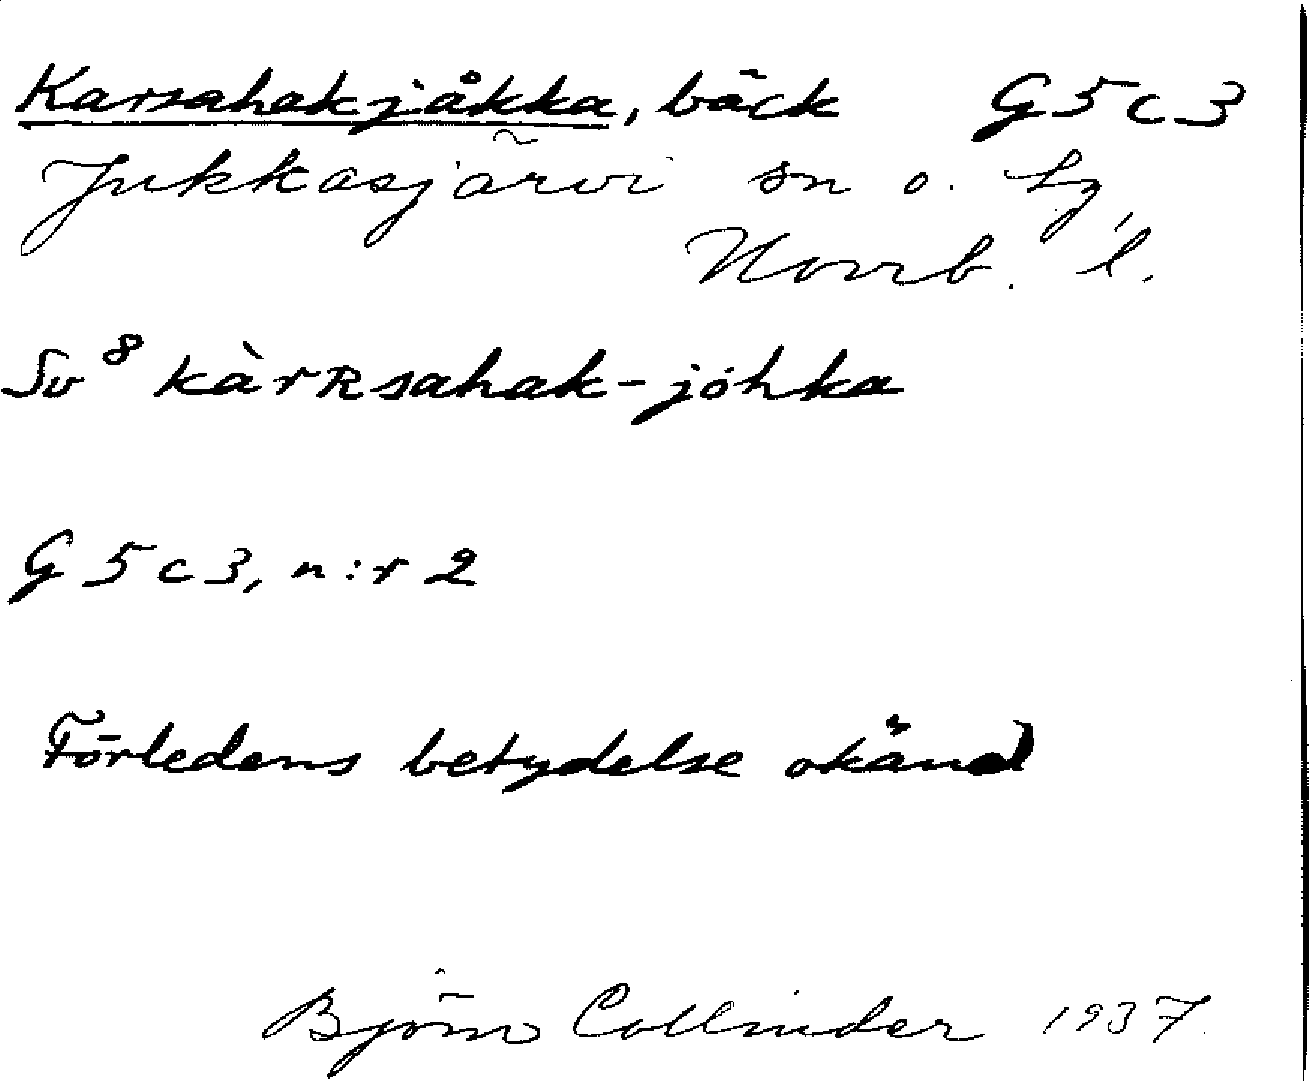 Karsahakjåkka, bäck G5c3
Jukkasjärvi sn o. lg,
Norrb. l.
Sv⁸ kàrRsahak-jóhka
G5c3, n:r 2
Förledens betydelse okänd
Björn Collinder 1937